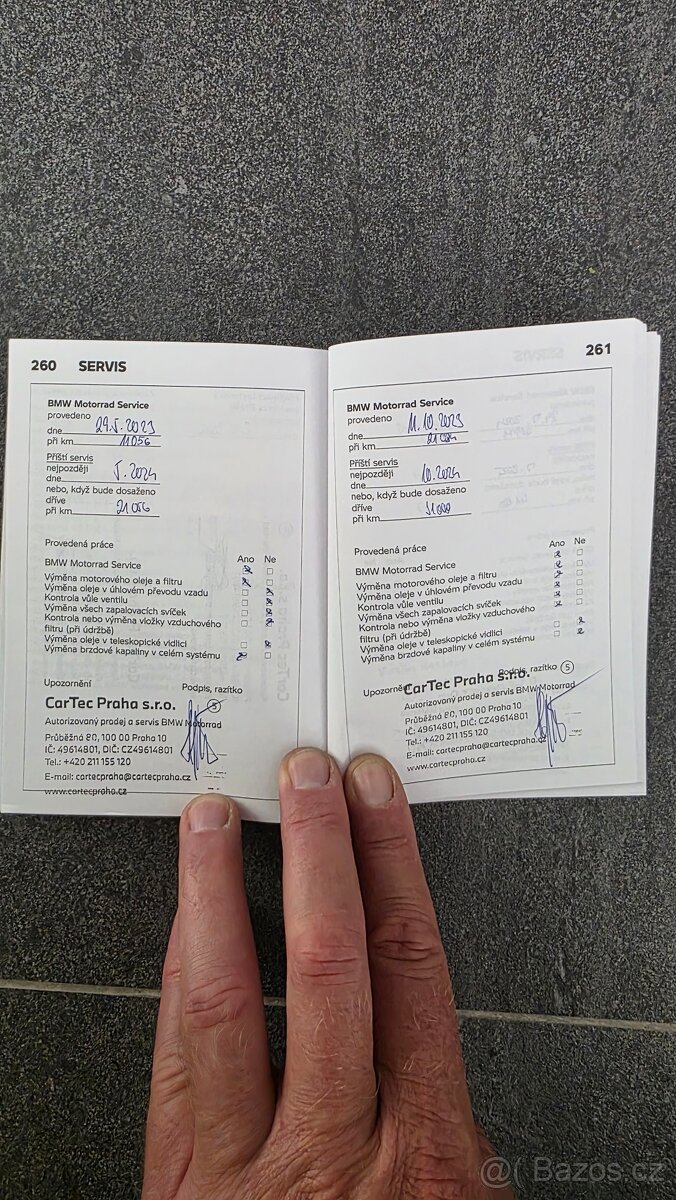 260 SERVIS
BMW Motorrad Service
provedeno
dne 29.5.2023
při km 11056
Příští servis
nejpozději
dne 5.2024
nebo, když bude dosaženo
dříve
při km 21056
Provedená práce
Ano Ne
BMW Motorrad Service
Výměna motorového oleje a filtru
Výměna oleje v úhlovém převodu vzadu
Kontrola vůle ventilu
Výměna všech zapalovacích svíček
Kontrola nebo výměna vložky vzduchového
filtru (při údržbě)
Výměna oleje v teleskopické vidlici
Výměna brzdové kapaliny v celém systému
Upozornění
Podpis, razítko
5
CarTec Praha s.r.o.
Autorizovaný prodej a servis BMW Motorrad
Průběžná 80, 100 00 Praha 10
IČ: 49614801, DIČ: CZ49614801
Tel.: +420 211 155 120
E-mail: cartecpraha@cartecpraha.cz
www.cartecpraha.cz
261
BMW Motorrad Service
provedeno
dne 11.10.2023
při km
Příští servis
nejpozději
dne 10.2024
nebo, když bude dosaženo
dříve
při km
Provedená práce
Ano Ne
BMW Motorrad Service
Výměna motorového oleje a filtru
Výměna oleje v úhlovém převodu vzadu
Kontrola vůle ventilu
Výměna všech zapalovacích svíček
Kontrola nebo výměna vložky vzduchového
filtru (při údržbě)
Výměna oleje v teleskopické vidlici
Výměna brzdové kapaliny v celém systému
Upozornění
Podpis, razítko
5
CarTec Praha s.r.o.
Autorizovaný prodej a servis BMW Motorrad
Průběžná 80, 100 00 Praha 10
IČ: 49614801, DIČ: CZ49614801
Tel.: +420 211 155 120
E-mail: cartecpraha@cartecpraha.cz
www.cartecpraha.cz
@( Bazos.cz